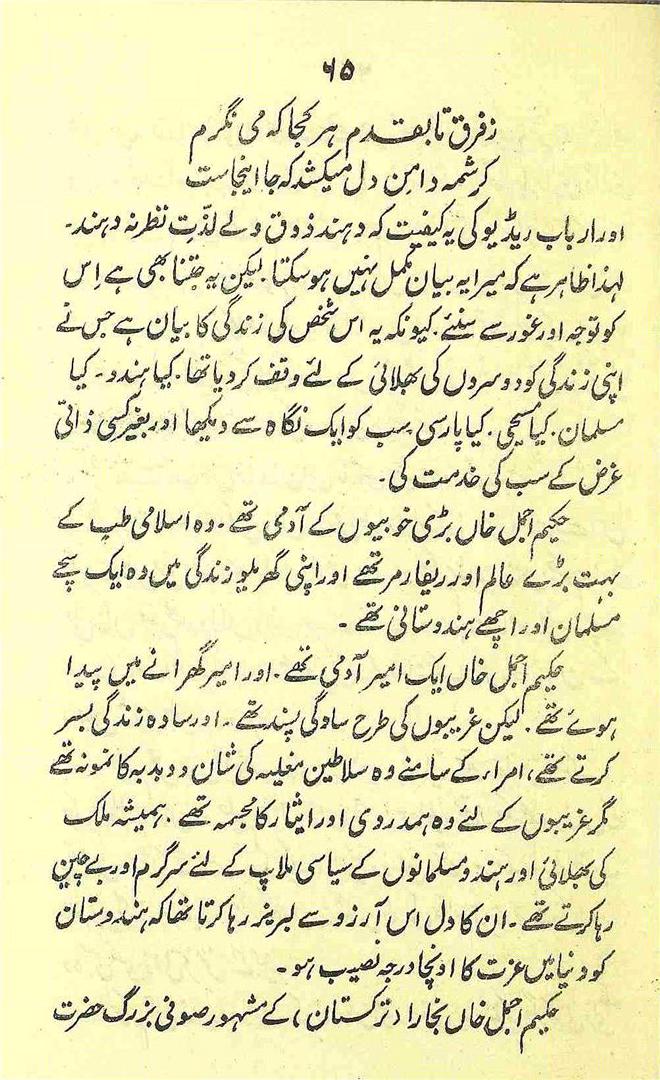 ۶۵
زفرق تا بقدم ہر کجا کہ می نگرم
کرشمہ دامنِ دل میکشد کہ جا اینجاست
اور ارباب ریڈیو کی یہ کیفیت کہ دہند ذوق ولے لذّتِ نظر نہ دہند۔
لہذا ظاہر ہے کہ میرا یہ بیان مکمل نہیں ہو سکتا۔ لیکن یہ جتنا بھی ہے اِس
کو توجہ اور غور سے سنئے۔ کیونکہ یہ اس شخص کی زندگی کا بیان ہے جس نے
اپنی زندگی کو دوسروں کی بھلائی کے لئے وقف کر دیا تھا۔ کیا ہندو۔ کیا
مسلمان۔ کیا مسیحی۔ کیا پارسی سب کو ایک نگاہ سے دیکھا اور بغیر کسی ذاتی
غرض کے سب کی خدمت کی۔
حکیم اجمل خاں بڑی خوبیوں کے آدمی تھے۔ وہ اسلامی طب کے
بہت بڑے عالم اور ریفارمر تھے اور اپنی گھریلو زندگی میں وہ ایک سچے
مسلمان اور اچھے ہندوستانی تھے۔
حکیم اجمل خاں ایک امیر آدمی تھے۔ اور امیر گھرانے میں پیدا
ہوئے تھے۔ لیکن غریبوں کی طرح سادگی پسند تھے۔ اور سادہ زندگی بسر
کرتے تھے، امراء کے سامنے وہ سلاطین مغلیہ کی شان و دبدبہ کا نمونہ تھے
مگر غریبوں کے لئے وہ ہمدردی اور ایثار کا مجسمہ تھے۔ ہمیشہ ملک
کی بھلائی اور ہندو مسلمانوں کے سیاسی ملاپ کے لئے سرگرم اور بے چین
رہا کرتے تھے۔ ان کا دل اس آرزو سے لبریز رہا کرتا تھا کہ ہندوستان
کو دنیا میں عزت کا اونچا درجہ نصیب ہو۔
حکیم اجمل خاں بخارا (ترکستان) کے مشہور صوفی بزرگ حضرت